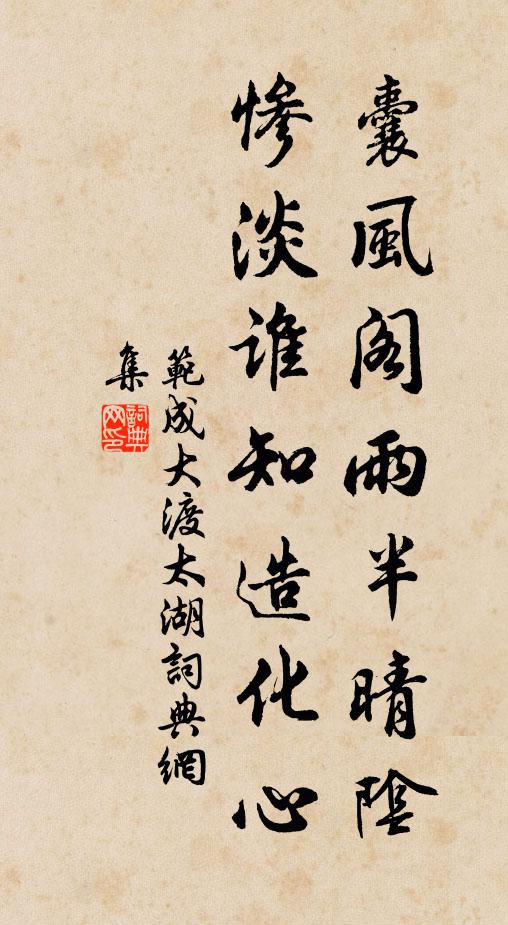 囊風閣雨半晴陰
慘淡誰知造化心
範成大渡太湖詞典網
集
詞典网印